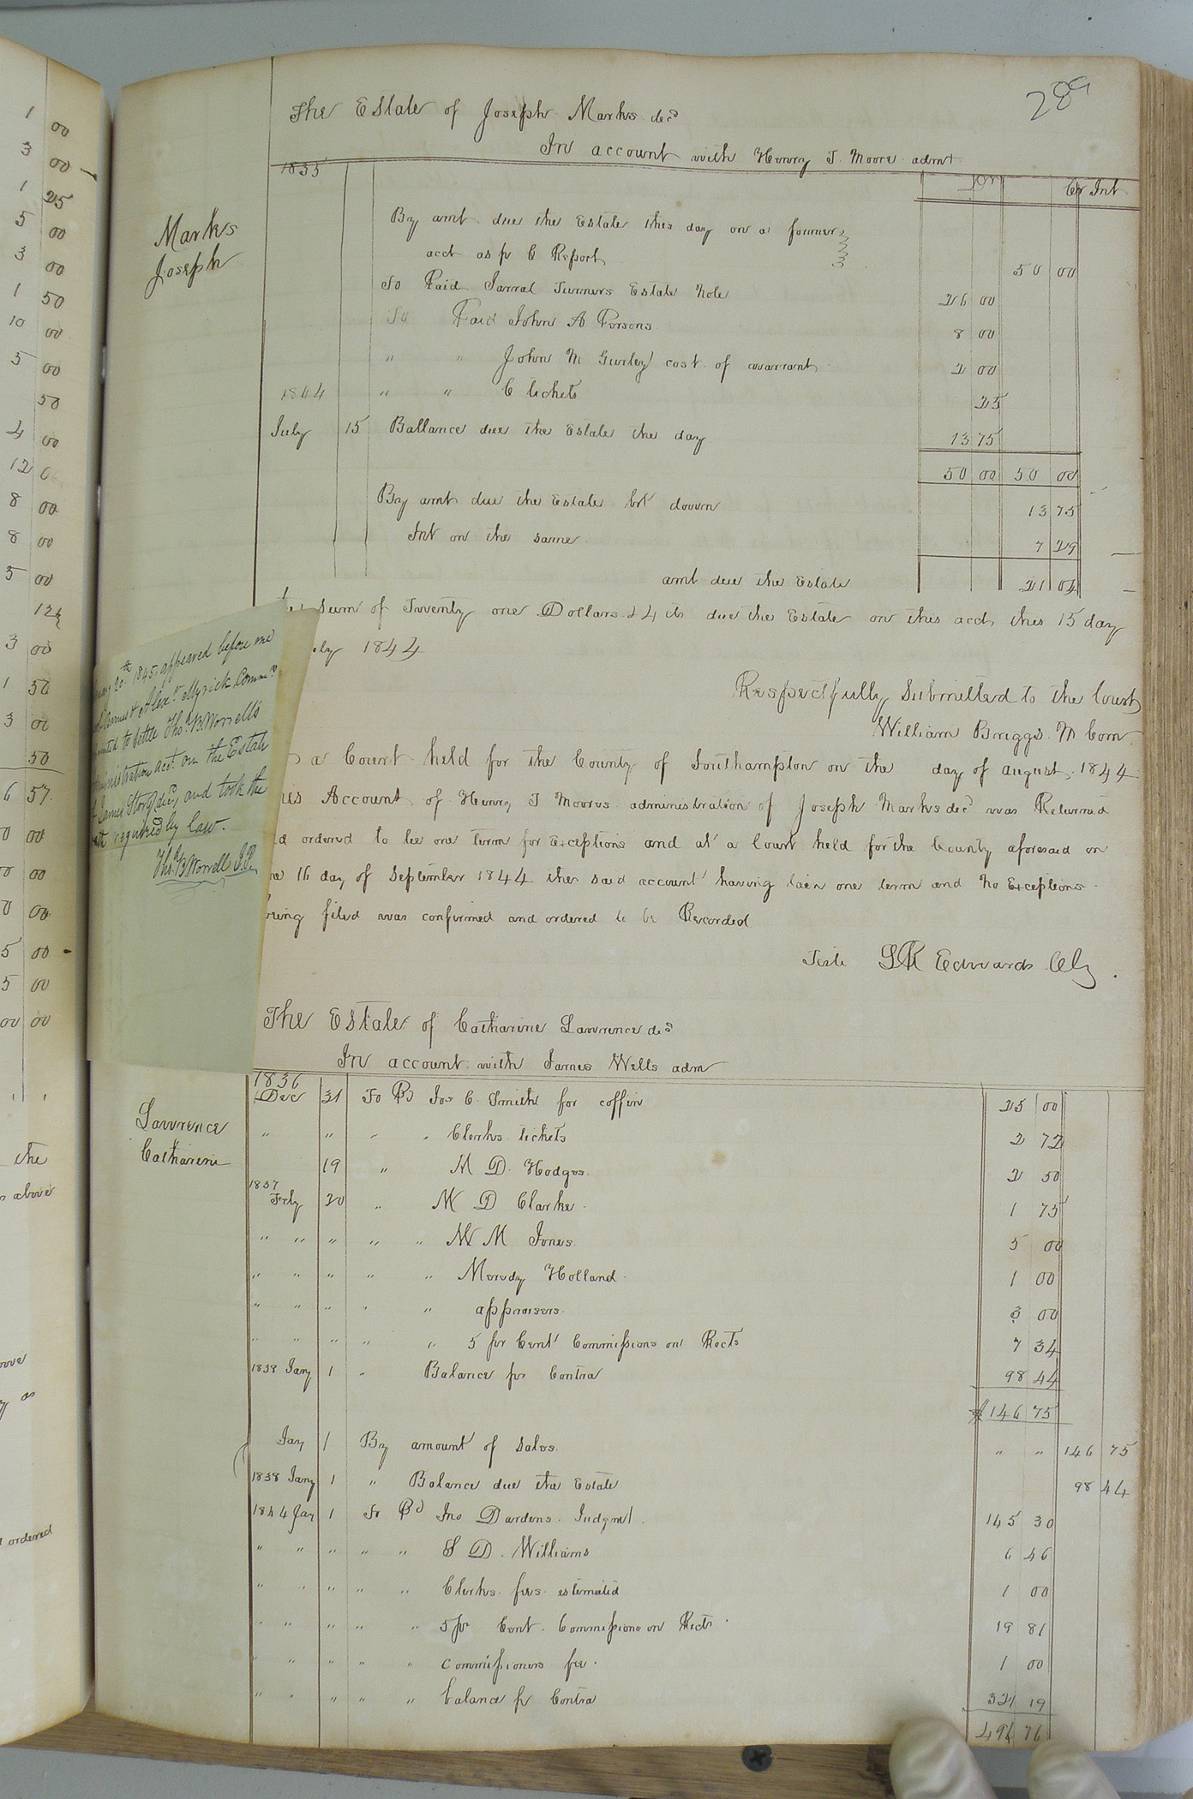 289
The Estate of Joseph Marks decd
In account with Henry T. Moore admr
1835 Dr Cr Int
Marks
Joseph
By amt due the Estate this day on a former
acct as pr C Report 50 00
To Paid Turners Estate Note 26 00
To Paid John A Persons 8 00
" " John M Gurley cost of warrant 2 00
1844 " " C tickets 25
July 15 Ballance due the Estate the day 13 75
50 00 50 00
By amt due the Estate bt down 13 75
Int on the same 7 29
amt due the Estate 21 04
Sum of Twenty one Dollars & 4 cts due the Estate on this acct this 15 day
1844
Respectfully Submitted to the Court
William Briggs M Com
a Court held for the County of Southampton on the day of august 1844
Account of Henry T Moores administration of Joseph Marks decd was Returned
ordered to lie one term for Exceptions and at a Court held for the County aforesaid on
16 day of September 1844 this said account having lain one term and no Exceptions
being filed was confirmed and ordered to be Recorded
Teste LR Edwards Clk
20th 1845, appeared before me
Alexr Myrick Commrs
to settle Thos B Worrell's
administration acct on the Estate
James Story decd, and took the
required by law.
Thos B Worrell J.P.
The Estate of Catharine Lawrence decd
In account with James Wells adm
Lawrence
Catharine
1836
Dec 31 To Pd Jos C. Smith for coffin 25 00
" " " " Clerks tickets 2 72
19 " M D. Hodges 2 50
1837
Feby 20 " M D Clarke 1 75
" " " " " W M Jones 5 00
" " " " " Moody Holland 1 00
" " " " " appraisers 3 00
" " " " " 5 pr Cent Commissions on Rects 7 34
1838 Jany 1 " Balance pr Contra 98 44
$146 75
Jay 1 By amount of Sales " " 146 75
1838 Jany 1 " Balance due the Estate 98 44
1844 Jay 1 To Pd Jno Dardens Judgmt 145 30
" " " " " S D. Williams 6 46
" " " " " Clerks fees estimated 1 00
" " " " " 5 pr Cent. Commissions on Rects 19 81
" " " " " Commissioners fee 1 00
" " " " " balance pr Contra 321 19
494 76
the
above
as
ordered
1 00
3 00
1 25
5 00
3 00
1 50
10 00
5 00
50
4 00
12 0
8 00
8 00
5 00
12½
3 00
1 50
3 00
50
6 57
0 00
00
0 00
5 00
5 00
00 00